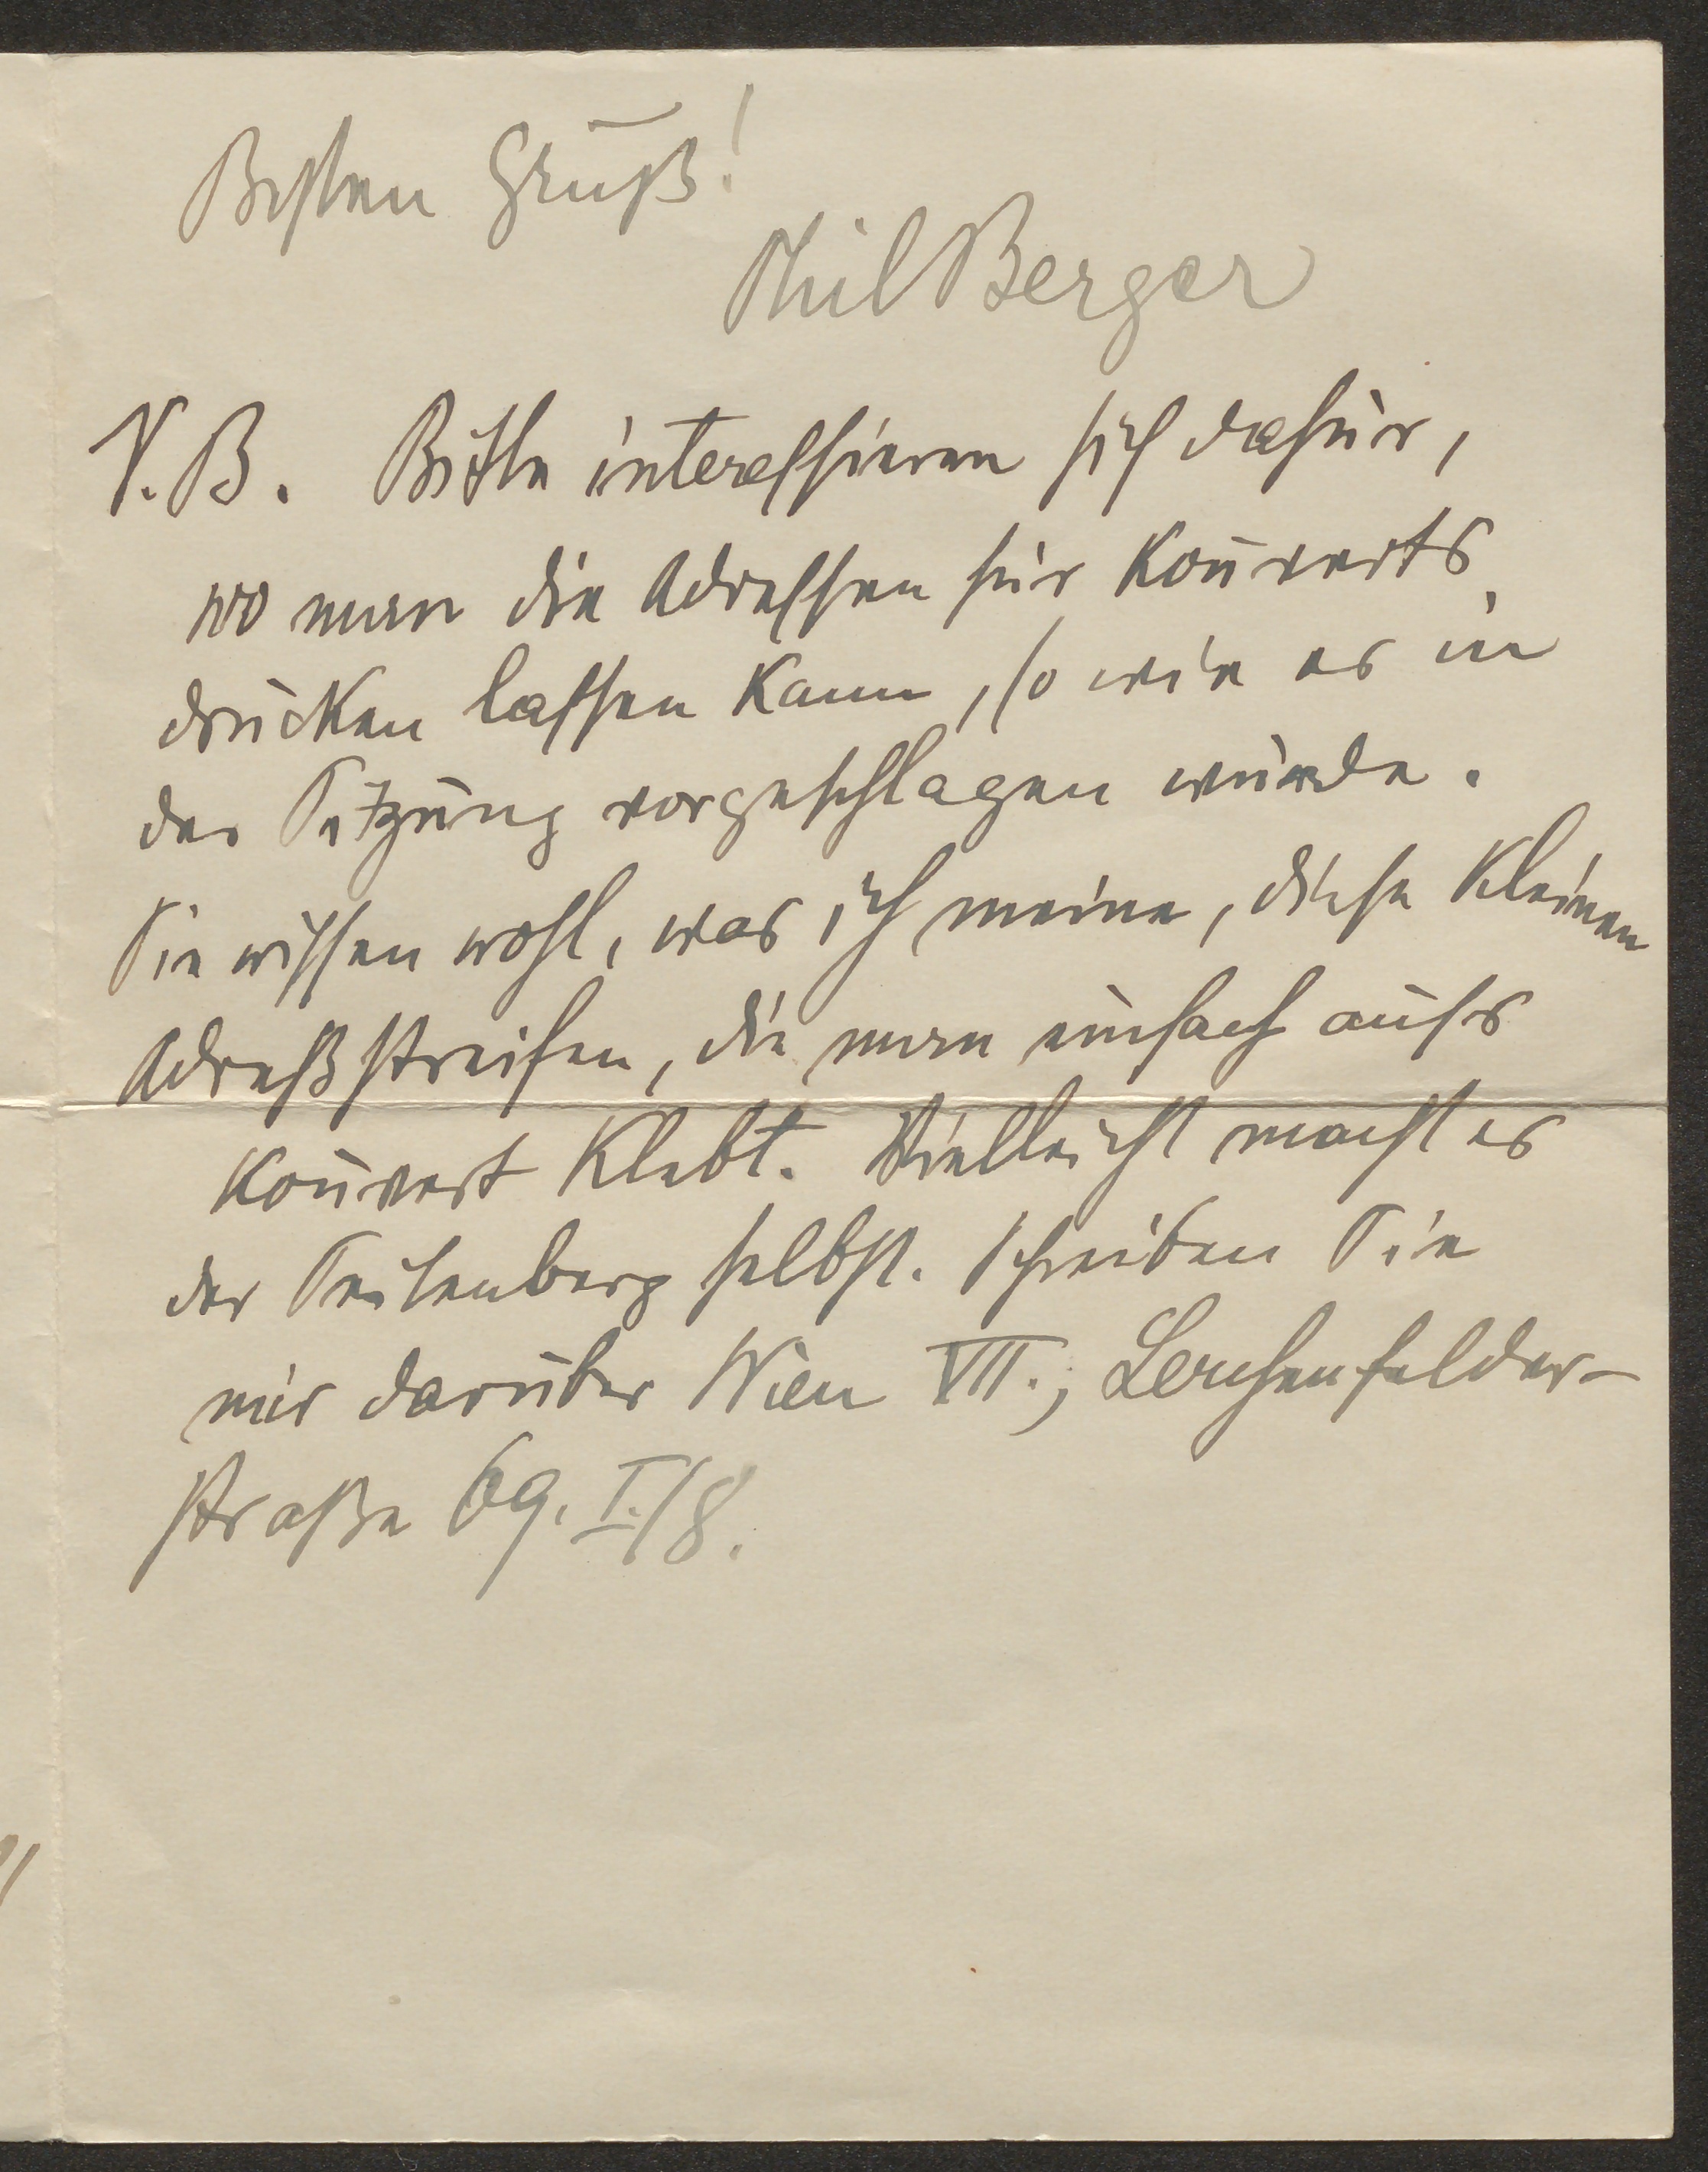 Besten Gruß!
Phil Berger
N.B. Bitte interessieren sich dafür,
wo man die Adressen für Kouverts
drucken lassen kann, so wie es in
der Sitzung vorgeschlagen wurde.
Sie wissen wohl, was ich meine, diese kleinen
Adreßstreifen, die man einfach aufs
Kouvert klebt. Vielleicht macht es
der selbst. Schreiben Sie
mir darüber Wien VII., Lerchenfelder-
straße 69. I./8.